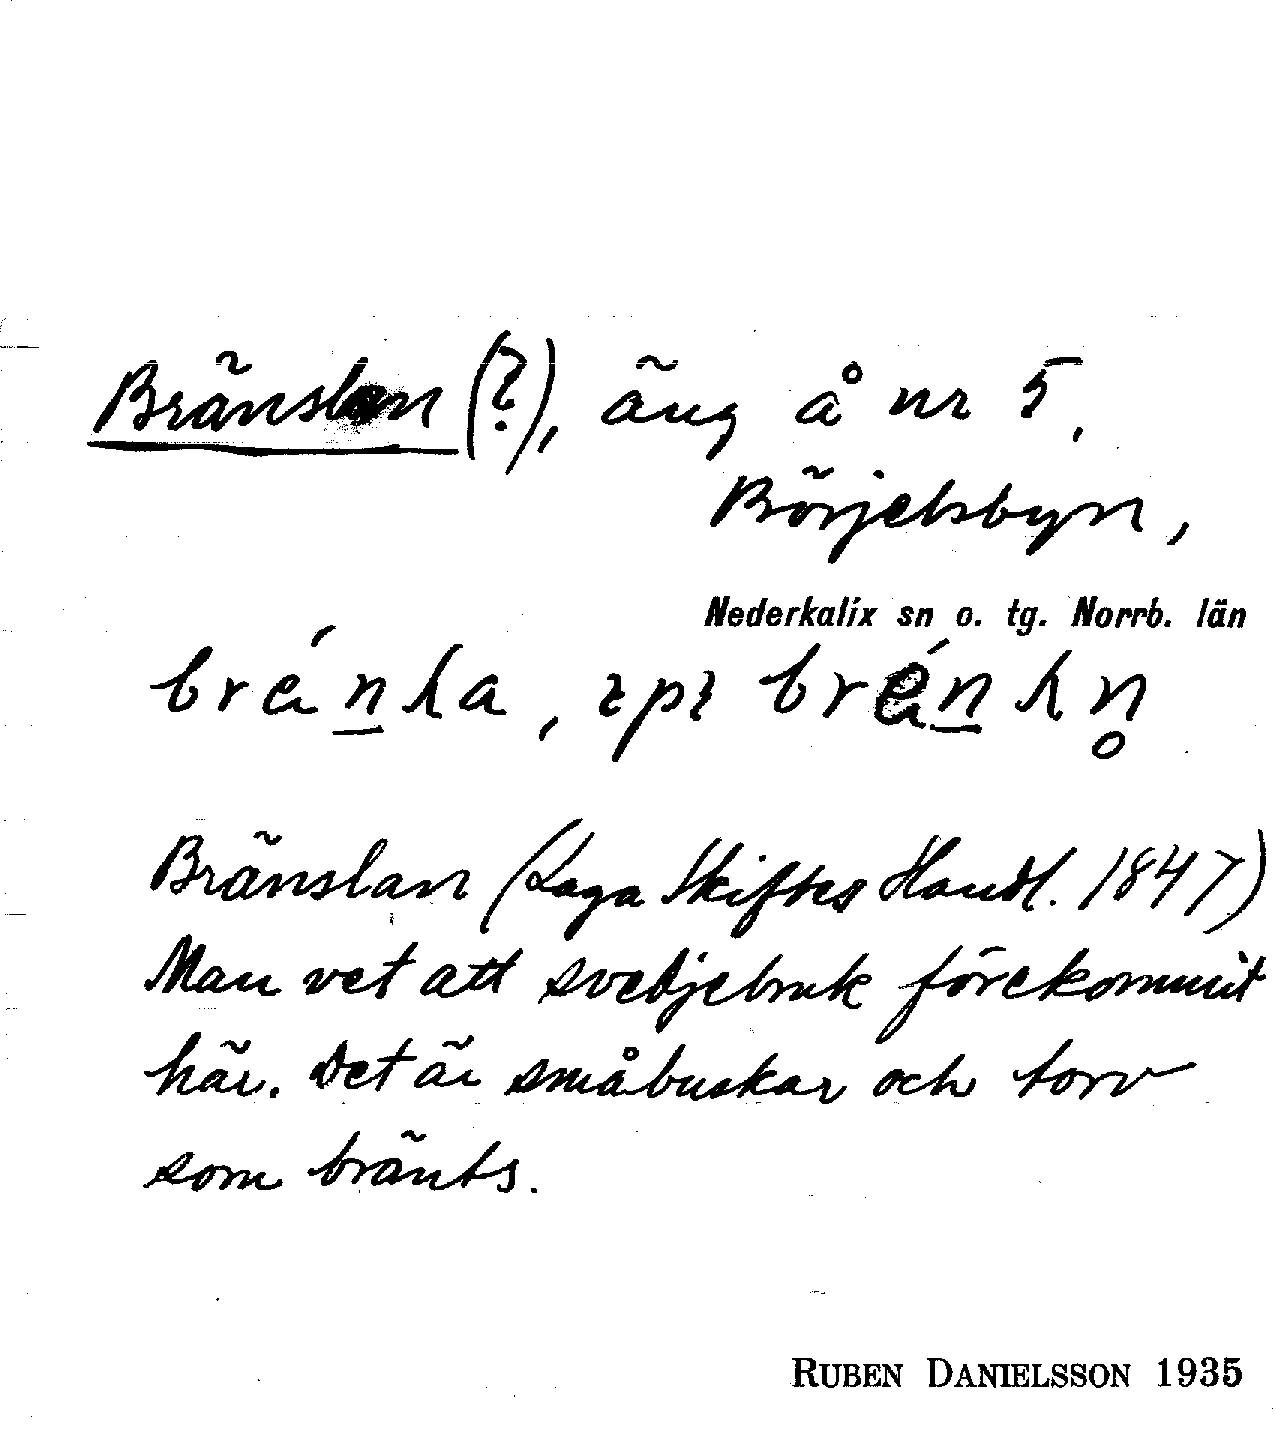 Bränslan (?), äng å nr 5,
Börjelsbyn,
Nederkalix sn o. tg. Norrb. län
Bränslan (Laga Skiftes Handl. 1847)
Man vet att svedjebruk förekommit
här. Det är småbuskar och torv
som bränts.
RUBEN DANIELSSON 1935